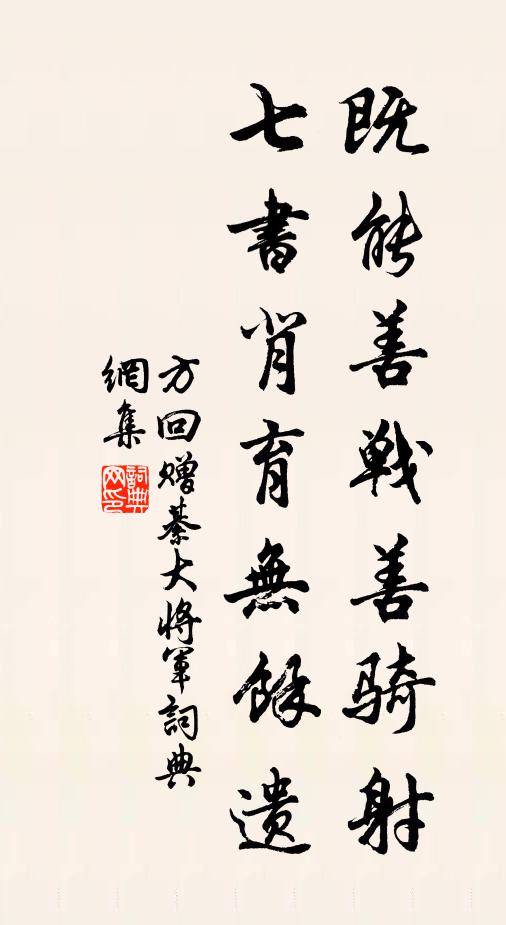 既能善戰善骑射
七書肖育無餘遗
方回赠綦大将軍詞典
網集
詞典網印